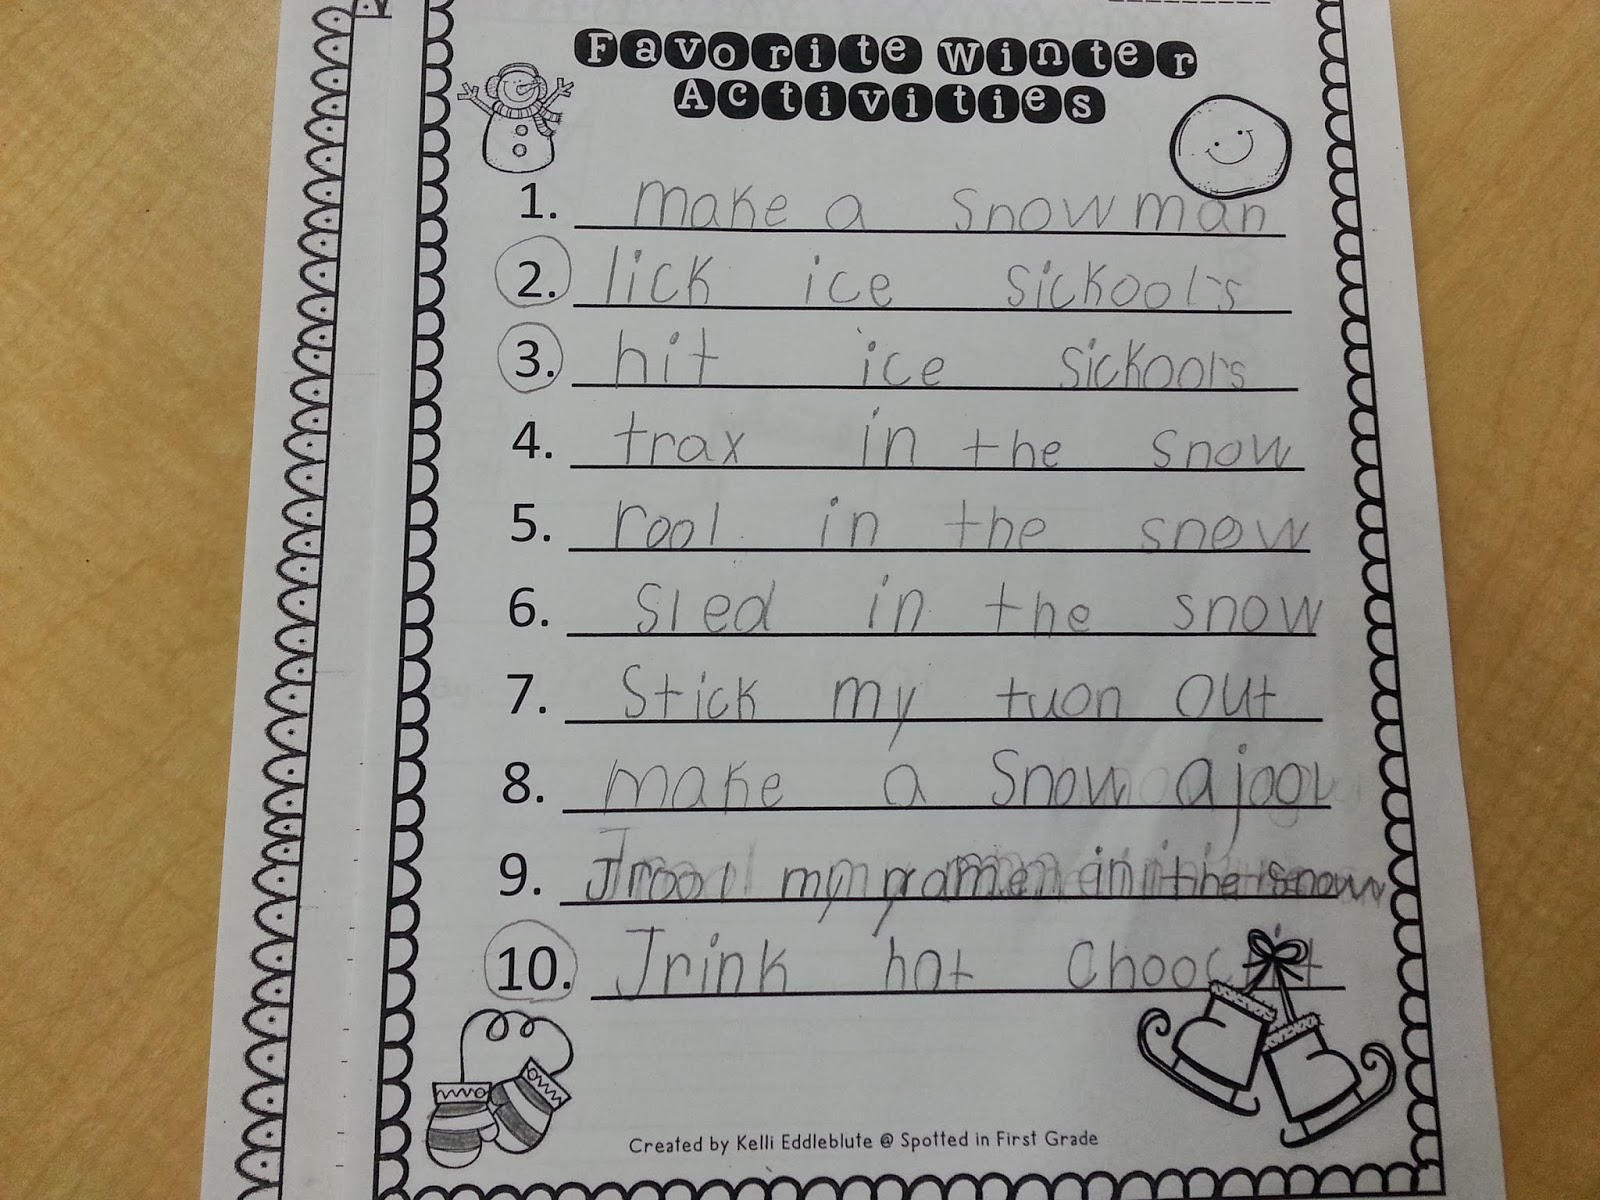 Favorite Winter
Activities
1. make a snowman
2. lick ice sickool's
3. hit ice sickools
4. trax in the snow
5. rool in the snow
6. sled in the snow
7. Stick my tuon out
8. make a Snow ajool
9. Jrool my in the snow
10. Jrink hot
Created by Kelli Eddleblute @ Spotted in First Grade